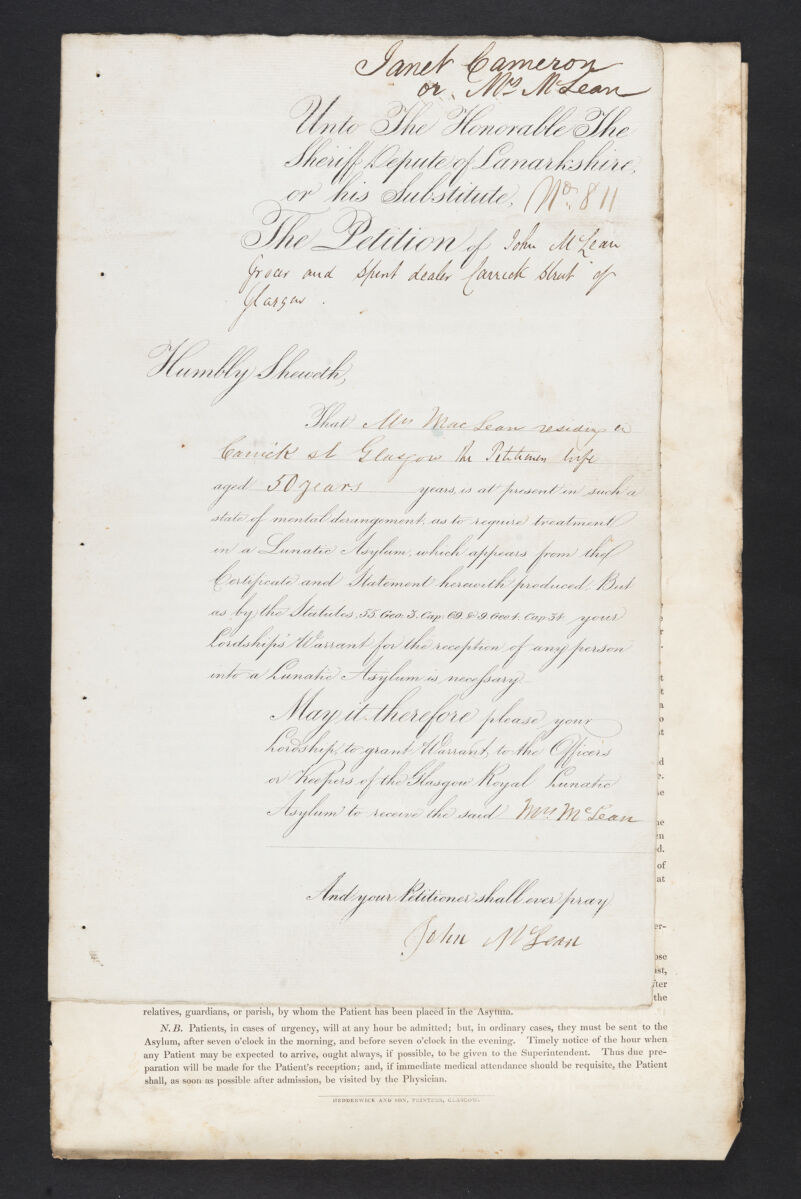 Janet Cameron
or Mrs McLean
Unto The Honorable The
Sheriff Depute of Lanarkshire,
or his Substitute, No. 811
The Petition of John McLean
Grocer and Spirit dealer Carrick Street of
Glasgow.
Humbly Sheweth,
That Mrs MacLean residing in
Carrick st Glasgow the Petitioners Wife
aged 50 years years, is at present in such a
state of mental derangement, as to require treatment
in a Lunatic Asylum, which appears from the
Certificate and Statement herewith produced. But
as by the Statutes, 55. Geo: 3. Cap: 69. & 9. Geo: 4. Cap: 34 your
Lordships' Warrant for the reception of any person
into a Lunatic Asylum is necessary
May it therefore please your
Lordship, to grant Warrant, to the Officers
or Keepers of the Glasgow Royal Lunatic
Asylum to receive the said Mrs McLean
And your Petitioner shall ever pray
John McLean
relatives, guardians, or parish, by whom the Patient has been placed in the Asylum.
N.B. Patients, in cases of urgency, will at any hour be admitted; but, in ordinary cases, they must be sent to the
Asylum, after seven o'clock in the morning, and before seven o'clock in the evening. Timely notice of the hour when
any Patient may be expected to arrive, ought always, if possible, to be given to the Superintendent. Thus due pre-
paration will be made for the Patient's reception; and, if immediate medical attendance should be requisite, the Patient
shall, as soon as possible after admission, be visited by the Physician.
HEDDERWICK AND SON, PRINTERS, GLASGOW.